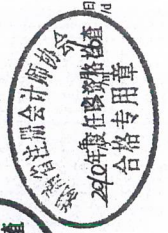 省注册会计师协会
2010年度任职资格检查
合格专用章
日
/d